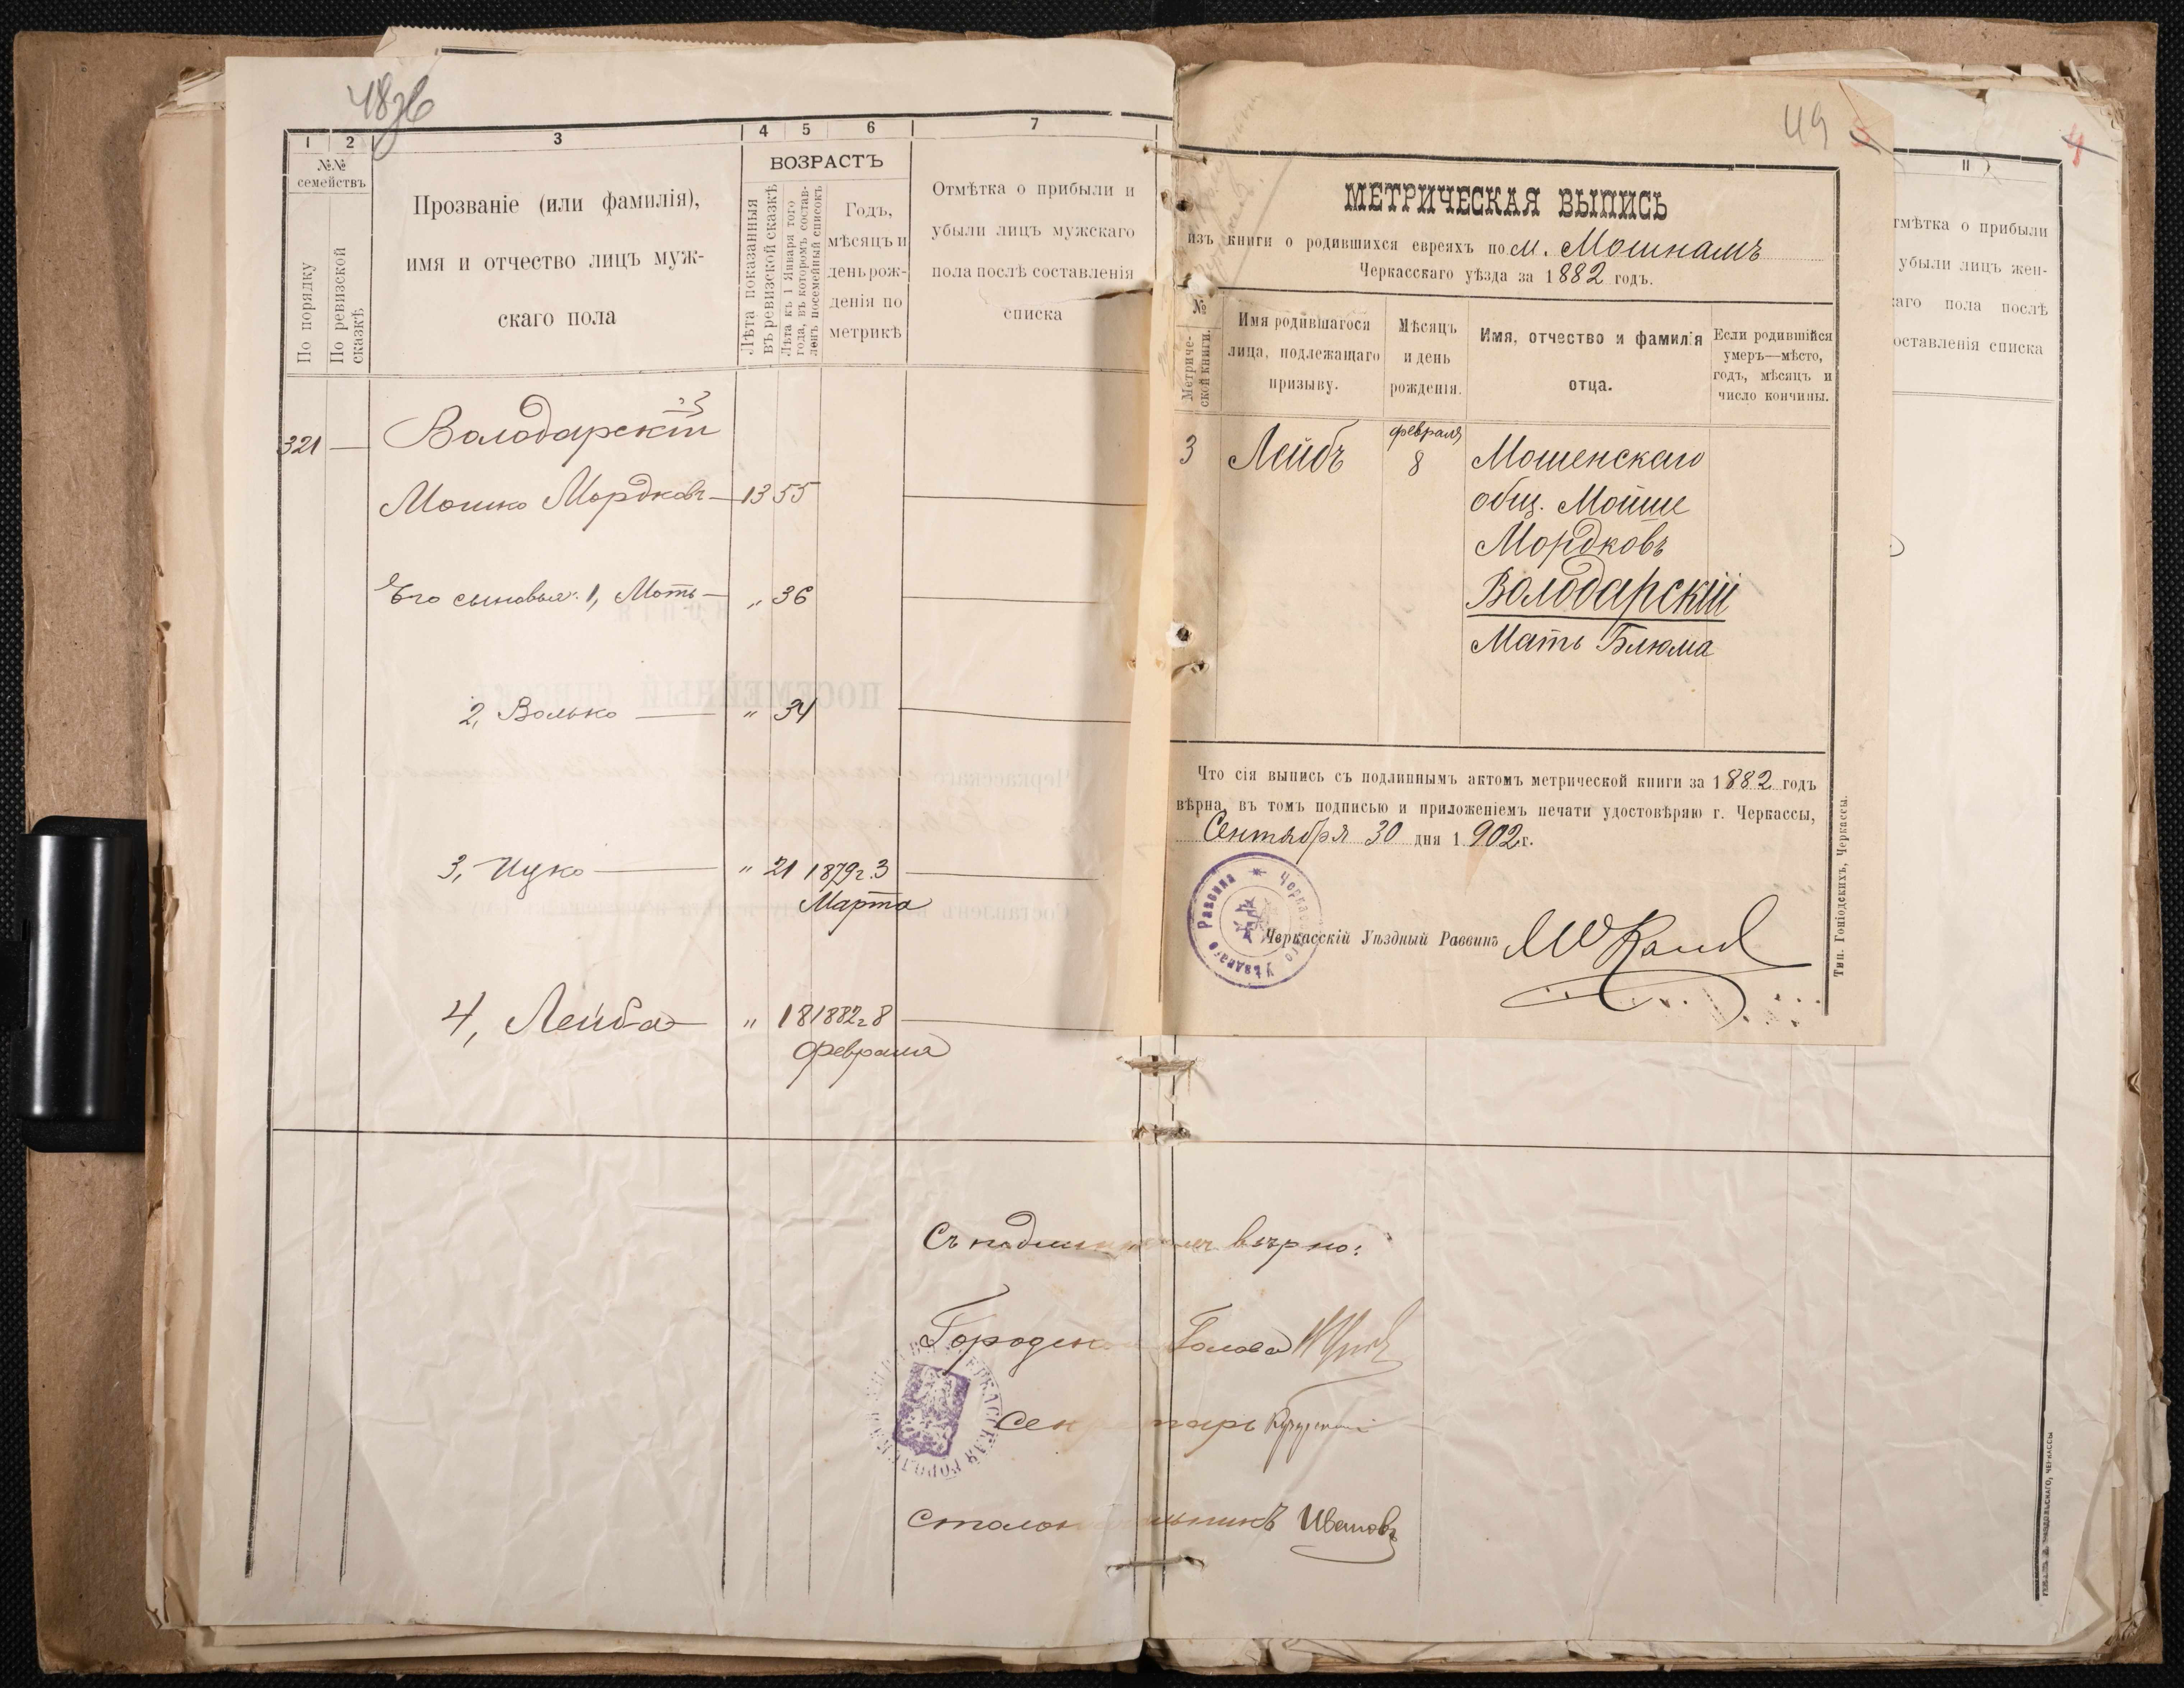 48 зв
1 2 3 4 5 6 7
№№ семействъ
По порядку
По ревизской сказкѣ
Прозваніе (или фамилія),
имя и отчество лицъ муж-
скаго пола
ВОЗРАСТЪ
Лѣта показанныя
въ ревизской сказкѣ
Лѣта къ 1 Января того
года, въ которомъ состав-
ленъ посемейный списокъ
Годъ,
мѣсяцъ и
день рож-
денія по
метрикѣ
Отмѣтка о прибыли и
убыли лицъ мужскаго
пола послѣ составленія
списка
321 — Володарскій
Мошко Мордковъ — 13 55
Его сыновья: 1, Моть — „ 36
2, Волько — „ 34
3, Ицко — „ 21 1879 г. 3
Марта
4, Лейба — „ 18 1882 г 8
февраля
Съ подлиннымъ вѣрно:
Городской Голова
Секретарь
Столоначальникъ Ивановъ
49
МЕТРИЧЕСКАЯ ВЫПИСЬ
изъ книги о родившихся евреяхъ по м. Мошнамъ
Черкасскаго уѣзда за 1882 годъ.
№
Метриче-
ской книги.
Имя родившагося
лица, подлежащаго
призыву.
Мѣсяцъ
и день
рожденія.
Имя, отчество и фамилія
отца.
Если родившійся
умеръ—мѣсто,
годъ, мѣсяцъ и
число кончины.
3 Лейбъ февраля
8 Мошенскаго
общ. Мойше
Мордковъ
Володарскій
Мать Блюма
Что сія выпись съ подлиннымъ актомъ метрической книги за 1882 годъ
вѣрна, въ томъ подписью и приложеніемъ печати удостовѣряю г. Черкассы,
Сентября 30 дня 1902 г.
Черкасскаго Уѣзднаго Раввина
Черкасскій Уѣздный Раввинъ
Тип. Гоніодскихъ, Черкассы.
4
11
тмѣтка о прибыли
убыли лицъ жен-
каго пола послѣ
оставленія списка